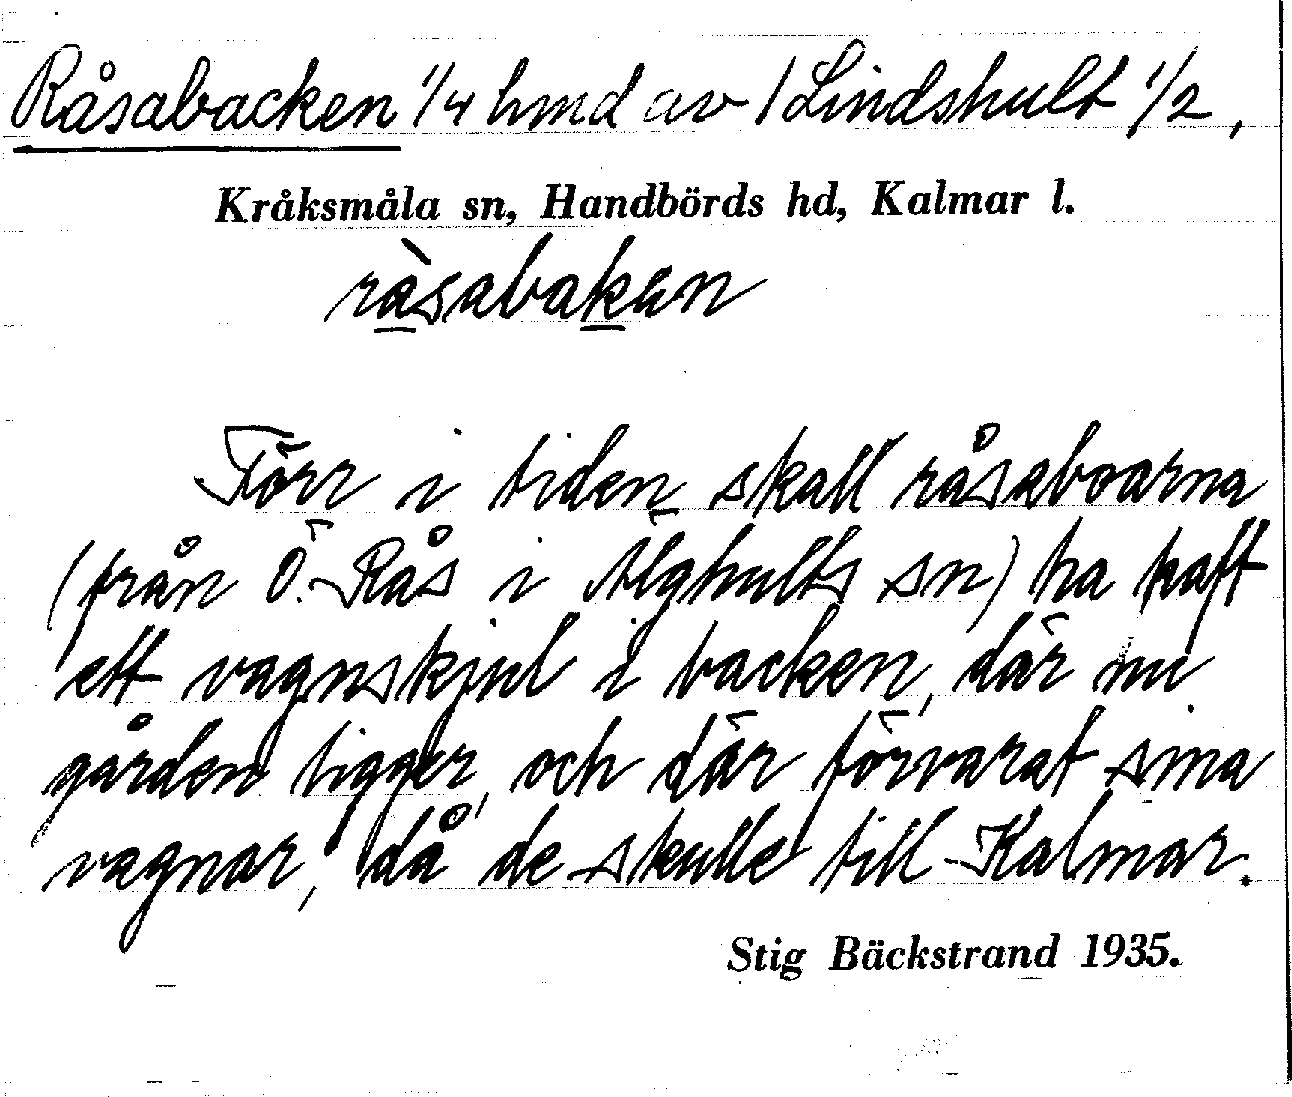 Råsabacken 1/4 hmd av / Lindshult 1/2,
Kråksmåla sn, Handbörds hd, Kalmar l.
ràsabakan
Förr i tiden skall råsaboarna
(från Ö. Rås i Älghults sn) ha haft
ett vagnskjul i backen, där nu
gården ligger, och där förvarat sina
vagnar, då de skulle till Kalmar.
Stig Bäckstrand 1935.